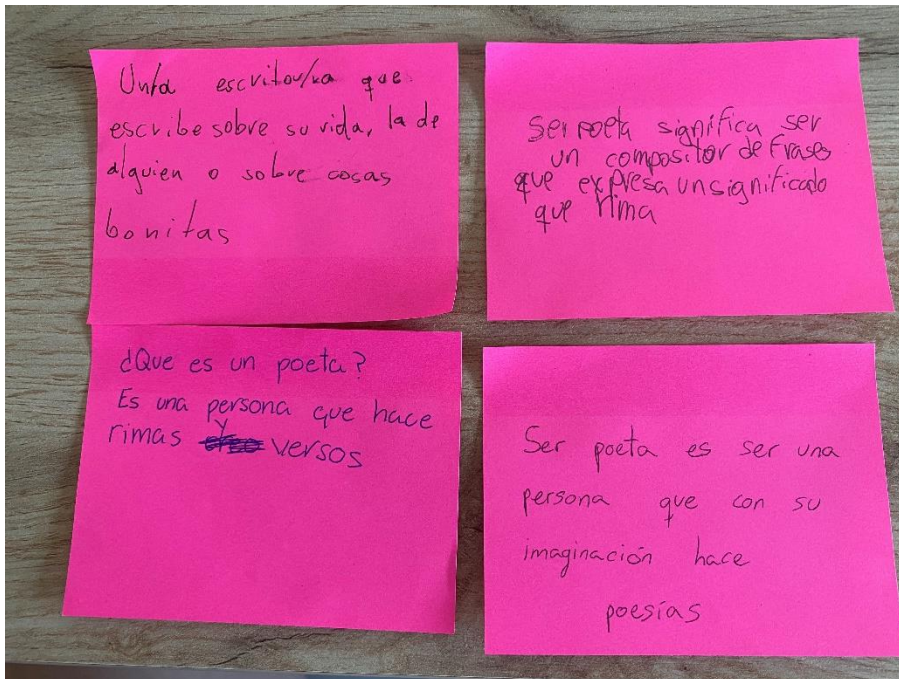 Un/a escritor/ra que
escribe sobre su vida, la de
alguien o sobre cosas
bonitas
Ser poeta significa ser
un compositor de frases
que expresa un significado
que rima
¿Que es un poeta?
Es una persona que hace
rimas y versos
Ser poeta es ser una
persona que con su
imaginación hace
poesías